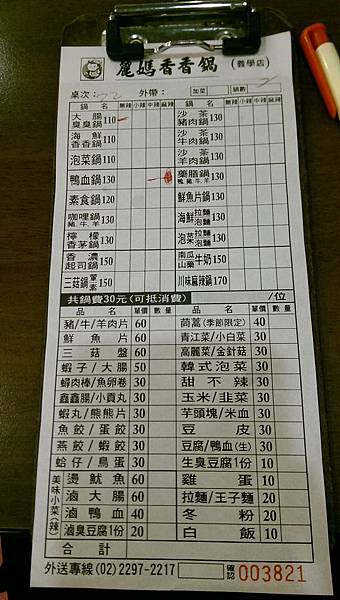 麗媽香香鍋 (義學店)
桌次： 72 外帶： 加菜 鍋數
鍋名 無辣 小辣 中辣 麻辣 鍋名 無辣 小辣 中辣 麻辣
大腸臭臭鍋 110 沙茶豬肉鍋 130
海鮮香香鍋 110 沙茶牛肉鍋 130
泡菜鍋 110 沙茶羊肉鍋 130
鴨血鍋 130 藥膳鍋 鴨 豬 牛 羊 130
素食鍋 120 鮮魚片鍋 130
咖哩鍋 豬 牛 羊 130 海鮮拉麵泡麵 130
檸檬香茅鍋 130 泡菜拉麵泡麵 130
香濃起司鍋 150 南瓜山藥牛奶 150
三菇鍋葷素 150 川味麻辣鍋 170
共鍋費30元(可抵消費) /位
品名 單價 數量 品名 單價 數量
豬/牛/羊肉片 60 茼蒿(季節限定) 40
鮮魚片 60 青江菜/小白菜 30
三菇盤 60 高麗菜/金針菇 30
蝦子/大腸 50 韓式泡菜 30
蟳肉棒/魚卵卷 30 甜不辣 30
鑫鑫腸/小貢丸 30 玉米/韭菜 30
蝦丸/熊熊片 30 芋頭塊/米血 30
魚餃/蛋餃 30 豆皮 30
燕餃/蝦餃 30 豆腐/鴨血(生) 30
蛤仔/鳥蛋 30 生臭豆腐1份 10
美味小菜(辣) 燙魷魚 60 雞蛋 10
滷大腸 60 拉麵/王子麵 20
滷鴨血 40 冬粉 20
滷臭豆腐1份 20 白飯 10
合計
外送專線 (02) 2297-2217 確認 003821